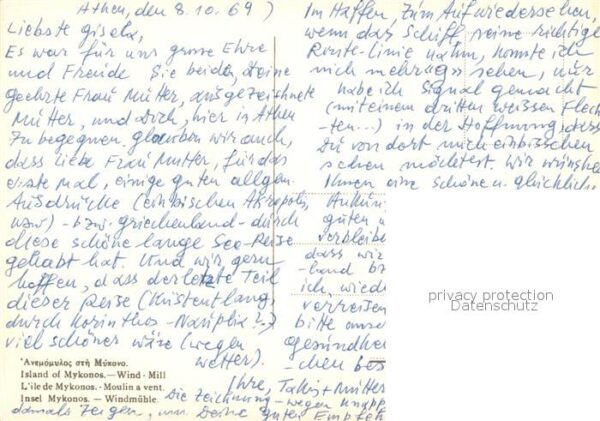 Athen, den 8.10.69)
Liebste gisela,
Es war für uns grosse Ehre
und Freude Sie beiden, deine
geehrte Frau Mutter, ausgezeichnete
Mutter, und Dich, hier in Athen
zu begegnen. glauben wir auch,
dass liebe Frau Mutter, für das
erste Mal, einige guten allgem.
Ausdrücke (ein bischen Akropolis,
usw) - bzw. griechenland - durch
diese schöne lange See-Reise
gehabt hat. Und wir gern
hoffen, dass der letzte Teil
dieser Reise (Küstentlang,
durch Korinthos - ?..)
viel schöner wäre (wegen
wetter).
Im Haffen, zum Aufwiedersehen,
wenn das Schiff seine richtige
Route-Linie nahm, konnte ich
nich mehr sehen, nur
habe ich Signal gemacht
(mit einem dritten weissen Flech
-ten...) in der Hoffnung, dass
Du von dort mich ein bisschen
sehen möchtest. Wir wünschen
Ihnen eine schöne u. glücklich.
Ankun
guten u
verbleibe
dass wir
-land b
ich, wied
verreisen
bitte unse
gesundhe
-chen bes
Ihre, Takis + Mutter
Die Zeichnung - wegen knapp
damals zeigen, um Deine guten Empfeh
Ἀνεμόμυλος στὴ Μύκονο.
Island of Mykonos. — Wind - Mill
L'ile de Mykonos. - Moulin a vent.
Insel Mykonos. — Windmühle.
privacy protection
Datenschutz